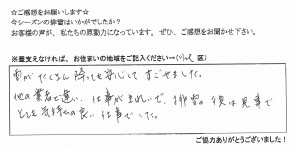 ☆ご感想をお願いします☆
今シーズンの排雪はいかがでしたか？
お客様の声が、私たちの原動力になっています。ぜひ、ご感想をお聞かせ下さい。
※差支えなければ、お住まいの地域をご記入ください→( 区)
雪がたくさん降っても安心してすごせました。
他の業者と違い、仕事がきれいで、排雪の後は見事で
とても気持の良い仕事でした。
ご協力ありがとうございました！